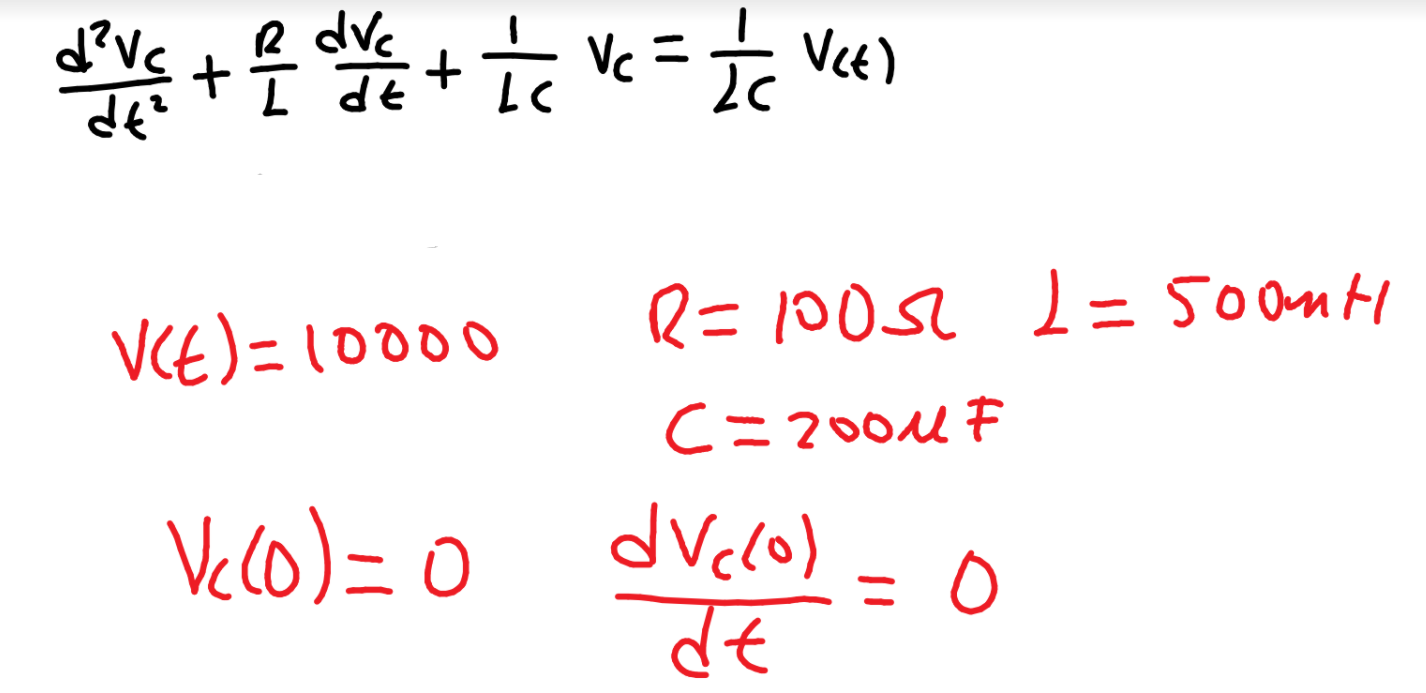 d²Vc/dt² + R/L dVc/dt + 1/LC Vc = 1/LC V(t)
V(t) = 10000
R = 100Ω L = 500mH
C = 200μF
Vc(0) = 0 dVc(0)/dt = 0